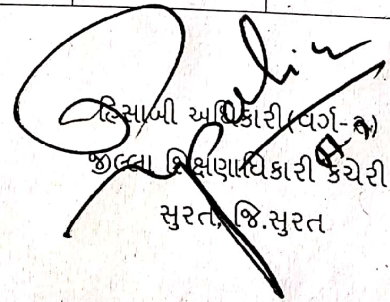 હિસાબી અધિકારી(વર્ગ-૨)
જીલ્લા શિક્ષણાધિકારી કચેરી
સુરત, જિ.સુરત